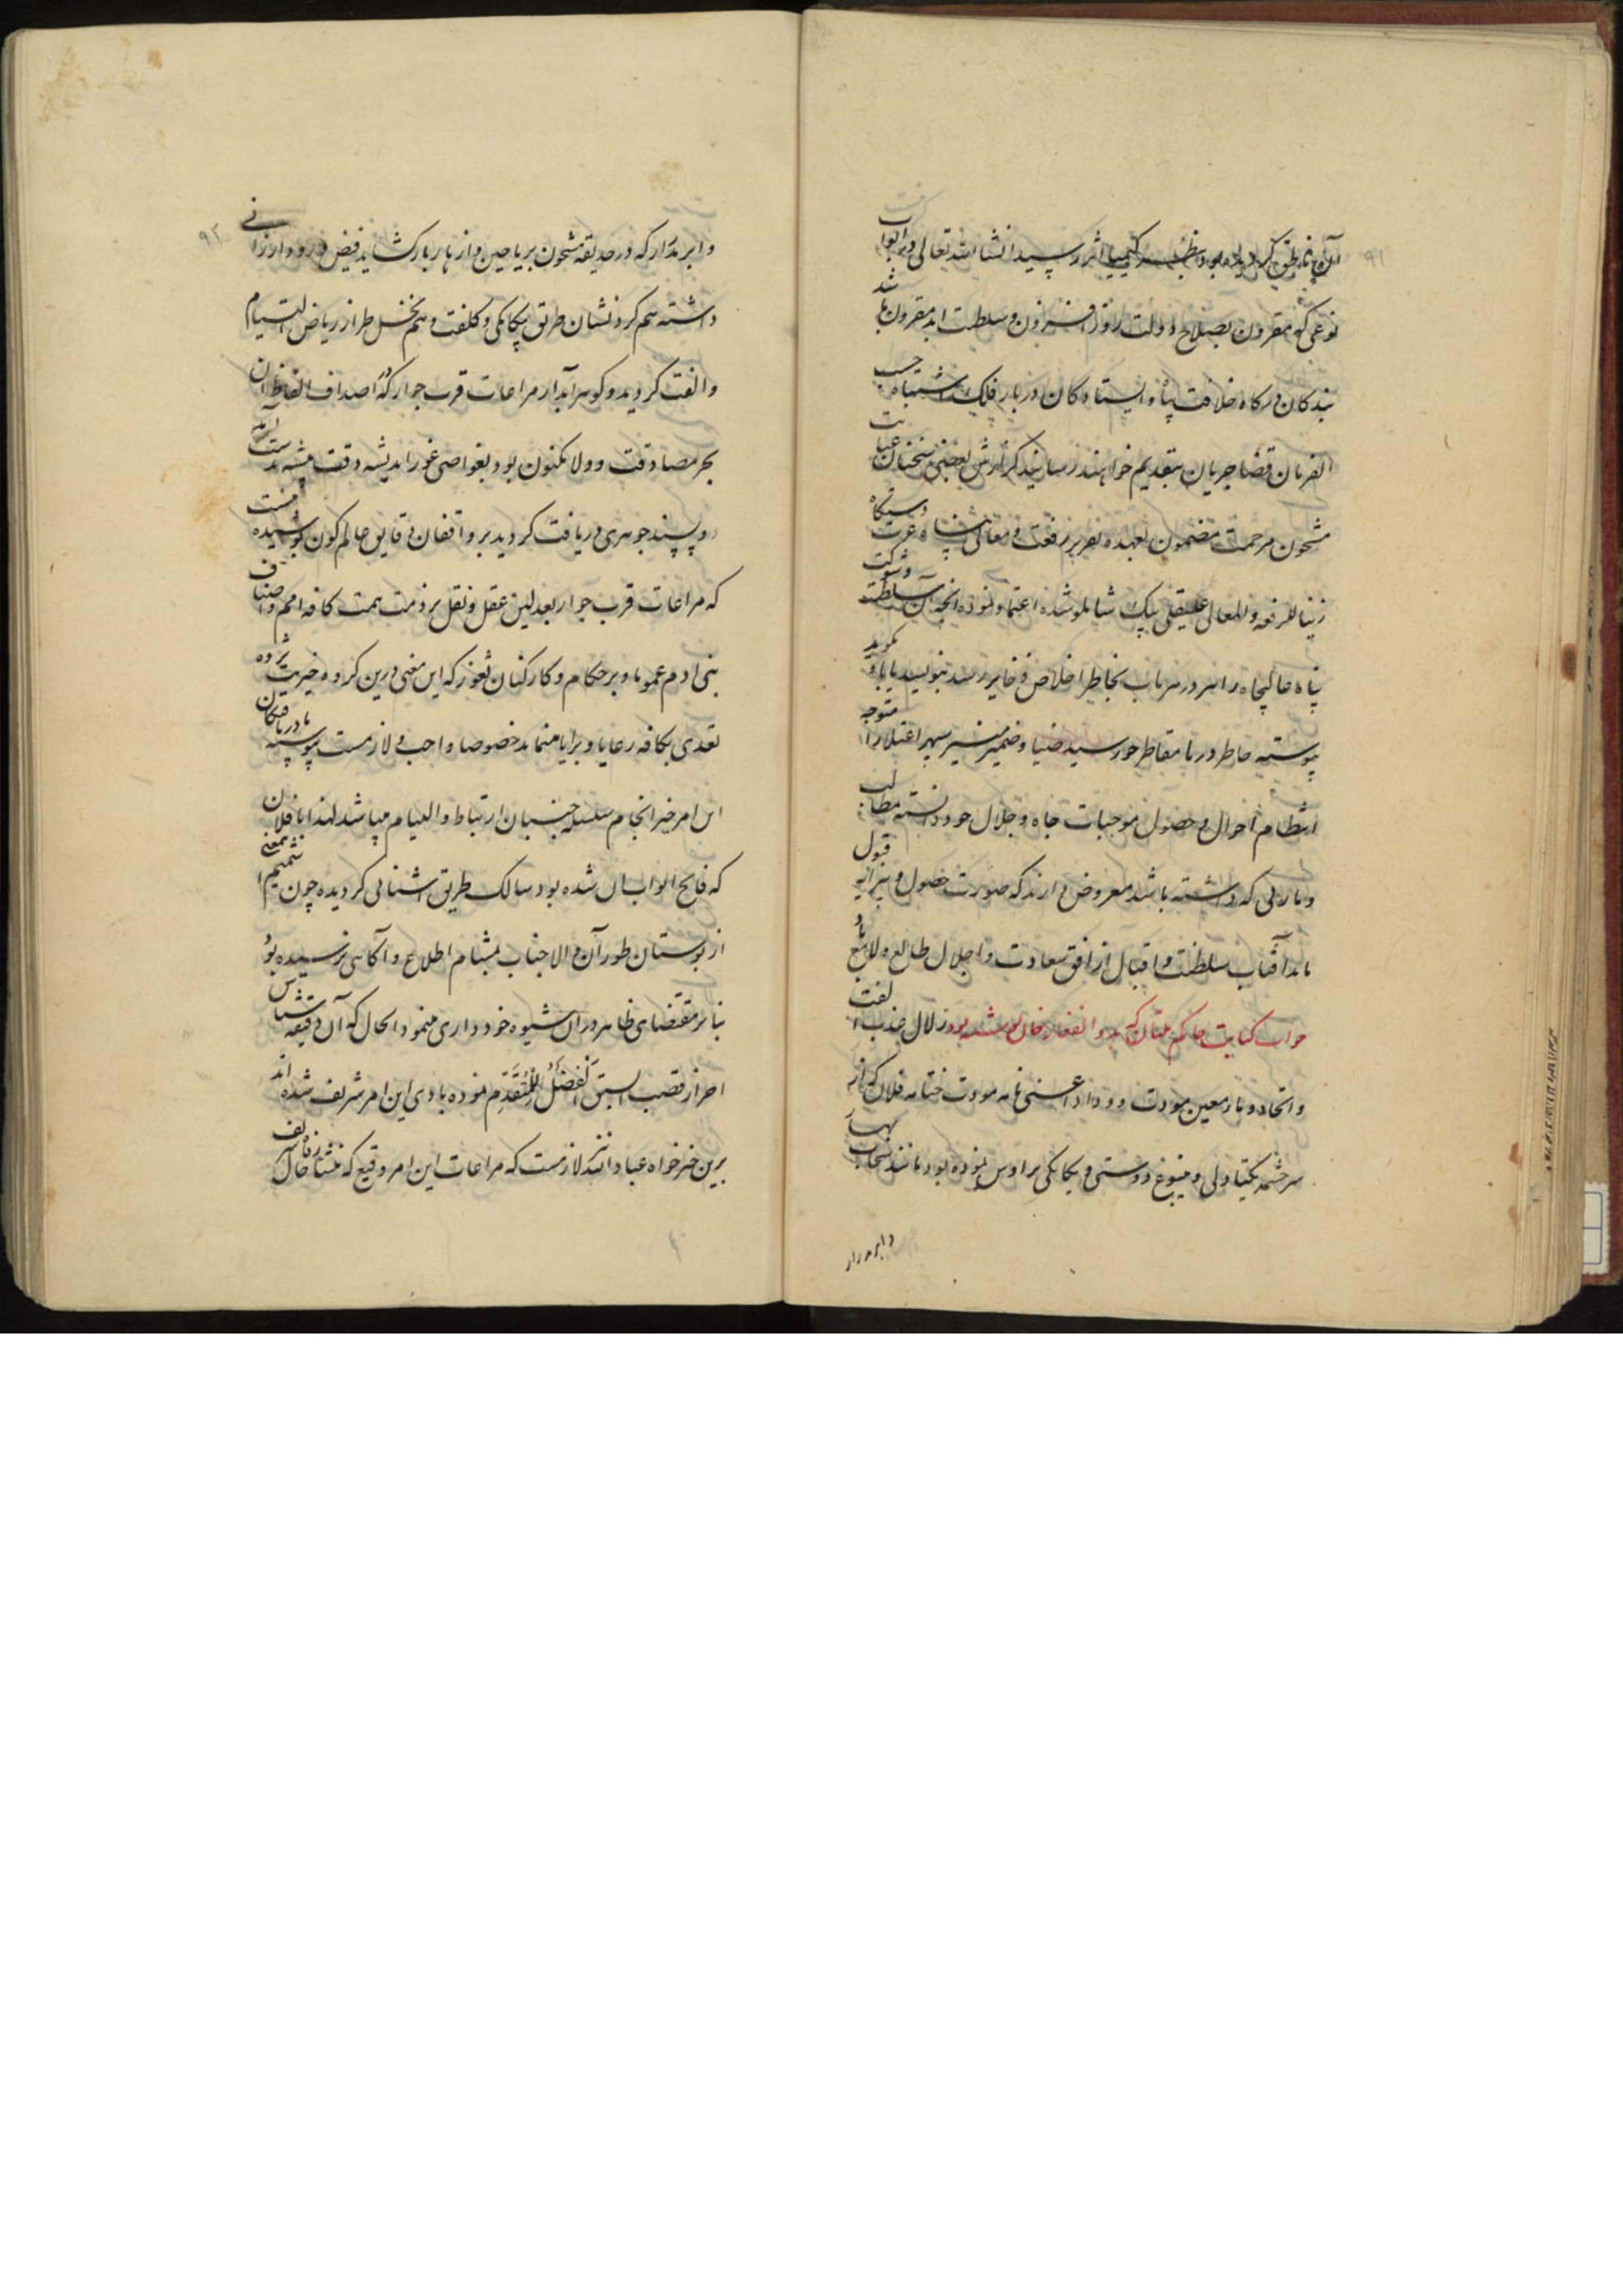 آن ناطق گردیده بود بنظر کیمیا اثر رسید انشاء الله تعالی در ابواب
نوعی که مقرون بصلاح دولت روز افزون و سلطنت ابد مقرون باشد
بندکان درکاه خلافت پناه و ایستادکان دربار فلک اشتباه حسب
الفرمان قضا جریان بتقدیم خواهند رسانید گزارش بعضی سخنان عنایت
مشحون مرحمت مضمون بعهده تقریر رفعت و معالی پناه عزت دستکاه
زینا لرفعه والمعالی علیقلی بیک شاملو شده اعتماد نموده آنچه آن سلطنت و شوکت
پناه عالیجاه را در هر باب بخاطر اخلاص ذخایر رسد بنویسند یا باو بگوید
پیوسته خاطر دریا مقاطر خورشید ضیا و ضمیر منیر سپهر اعتلا را متوجه
انتظام احوال و حصول موجبات جاه و جلال خود دانسته مطالب
و مآربی که داشته باشد معروض دارند که صورت حصول و پیرایه قبول
یابد آفتاب سلطنت و اقبال از افق سعادت و اجلال طالع و لامع باد
جواب کتابت حاکم ملتان که بذوالفقار خان نوشته بود زلال عذب الفت
و اتحاد و ماء معین مودت و وداد اعنی نامه مودت ختامه فلان که از
سرچشمه یکتادلی و ینبوع دوستی و یکانکی تراوش نموده بود مانند سحاب بهار
وابر مدرار
۹۱
و ابر مدرار که در حدیقه مشحون بریاحین و ازهار بارکشاید فیض ورود ارزانی
داشته هم کرد نشان طریق بیکانکی و کلفت و هم نخل طراز ریاض التیام
و الفت کردید و کوهر آبدار مراعات قرب جوار که در اصداف الفاظ آن
بحر مصادقت و ولا مکنون بود بغواصی غور اندیشه دقت پیشه بدست آمده
روپسند جوهری دریافت کردید بر واقفان دقایق عالم کون پوشیده نیست
که مراعات قرب جوار بعدلین عقل و نقل بر ذمت همت کافه امم و اصناف
بنی ادم عموما و بر حکام و کارکنان ثغور که این معنی درین کروه خیریت پژوه
تعدی بکافه رعایا و برایا مینماید خصوصا واجب و لازمست پیوسته
این امر خیر انجام سلسله جنبان ارتباط و التیام میباشد لهذا با فلان
که فاتح ابواب آن شده بود سالک طریق آشنائی کردیده چون شمیم این معنی
از بوستان طور آن والاجناب بمشام اطلاع و آکاهی نرسیده بود
بنابر مقتضای ظاهر در آن شیوه خودداری مینمود الحال که آن دقیقه شناس
احراز قصب السبق الفضل للمتقدم نموده بادی این امر شریف شده اند
برین خیرخواه عباد الله نیز لازمست که مراعات این امر وقیع که منشا رفاه حال
۹۲